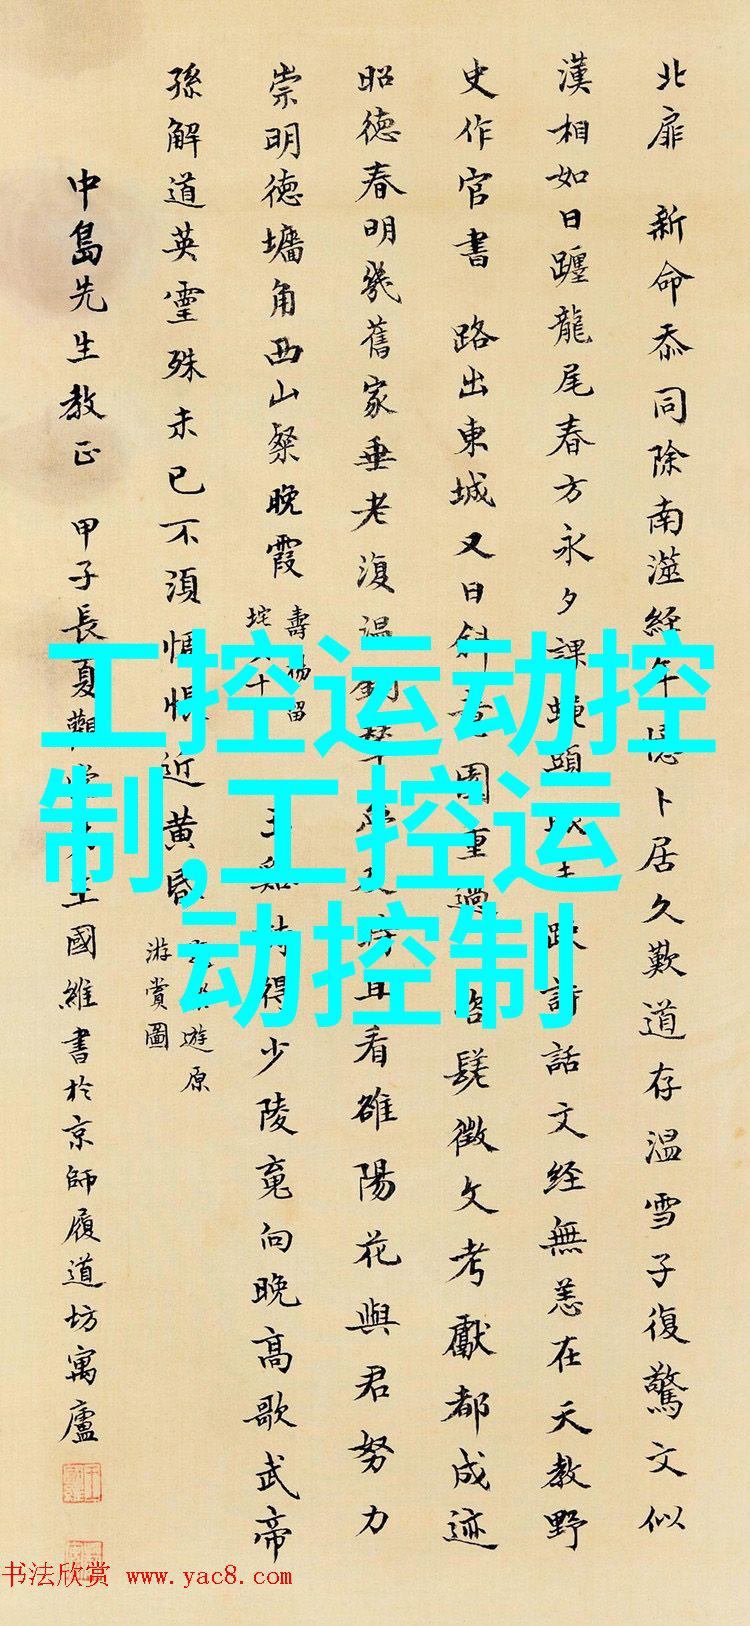 北扉 新命忝同除南澨經年憶卜居久歎道存温雪子復驚文似
漢相如日躔龍尾春方永夕課蠅頭
詩話文经無恙在天教野
史作官書 路出東城又日斜
園重過
髦徵文考獻都成迹
昭德春明幾舊家垂老復温
看雒陽花與君努力
崇明德墉角西山粲晚霞
壽
留
十
得少陵竟向晚高歌武帝
孫解道英靈殊未已不須惆悵近黄昏
遊原
游賞圖
中島先生教正 甲子長夏觀堂
王國維書於京師履道坊寓廬
工控运动控
制,工控运
动控制
书法欣赏 www.yac8.com